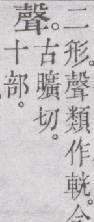 二形。聲類作軦。今
聲。古曠切。
十部。